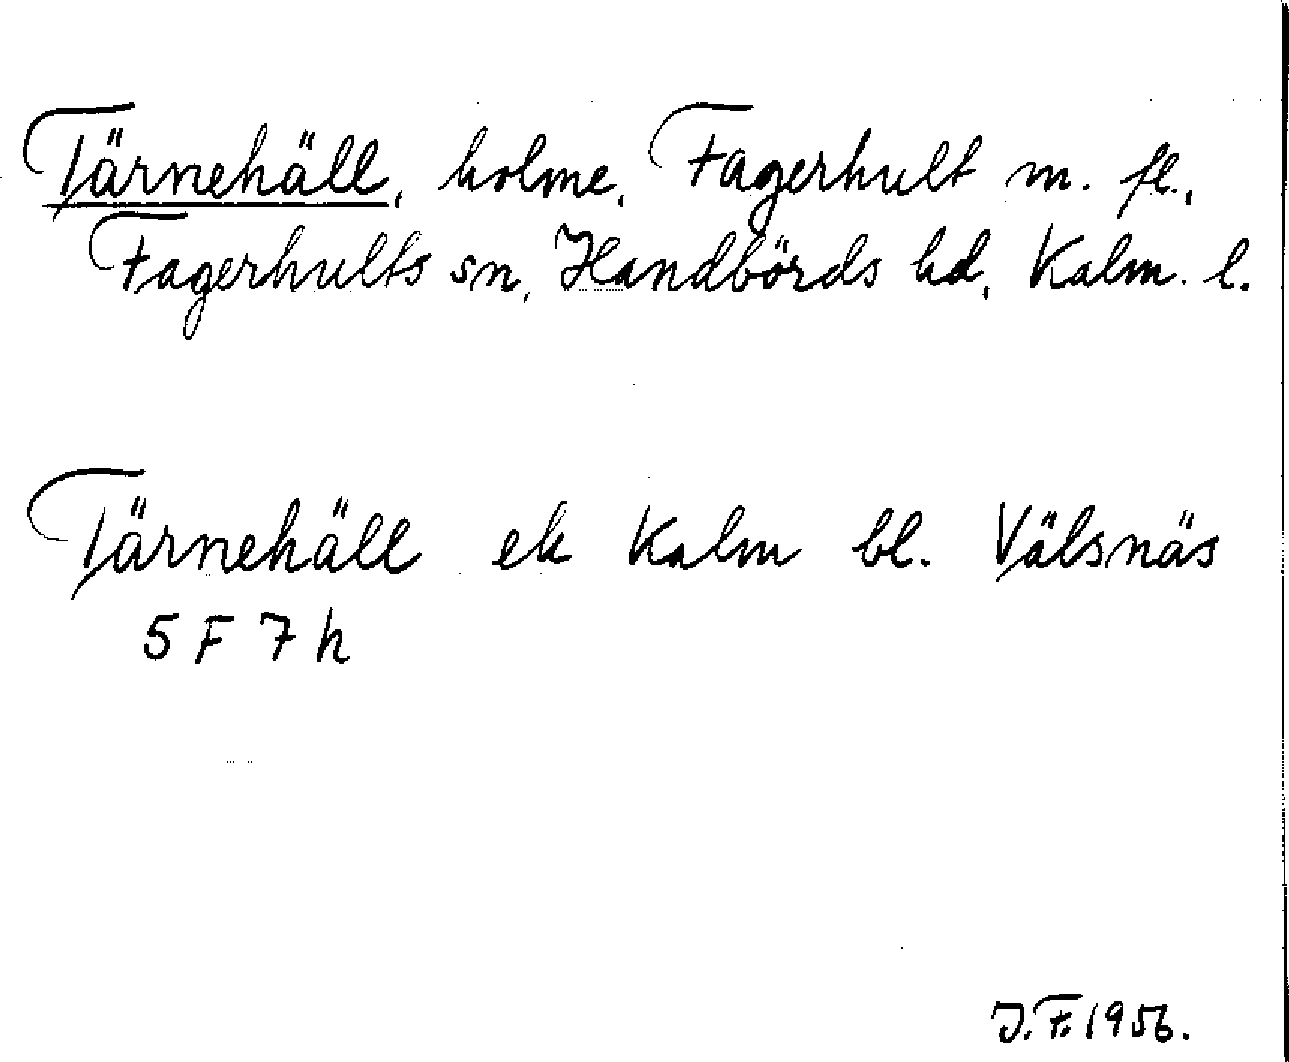 Tärnehäll, holme, Fagerhult m. fl.,
Fagerhults sn, Handbörds hd, Kalm. l.
Tärnehäll ek Kalm bl. Välsnäs
5 F 7 h
J. F. 1956.